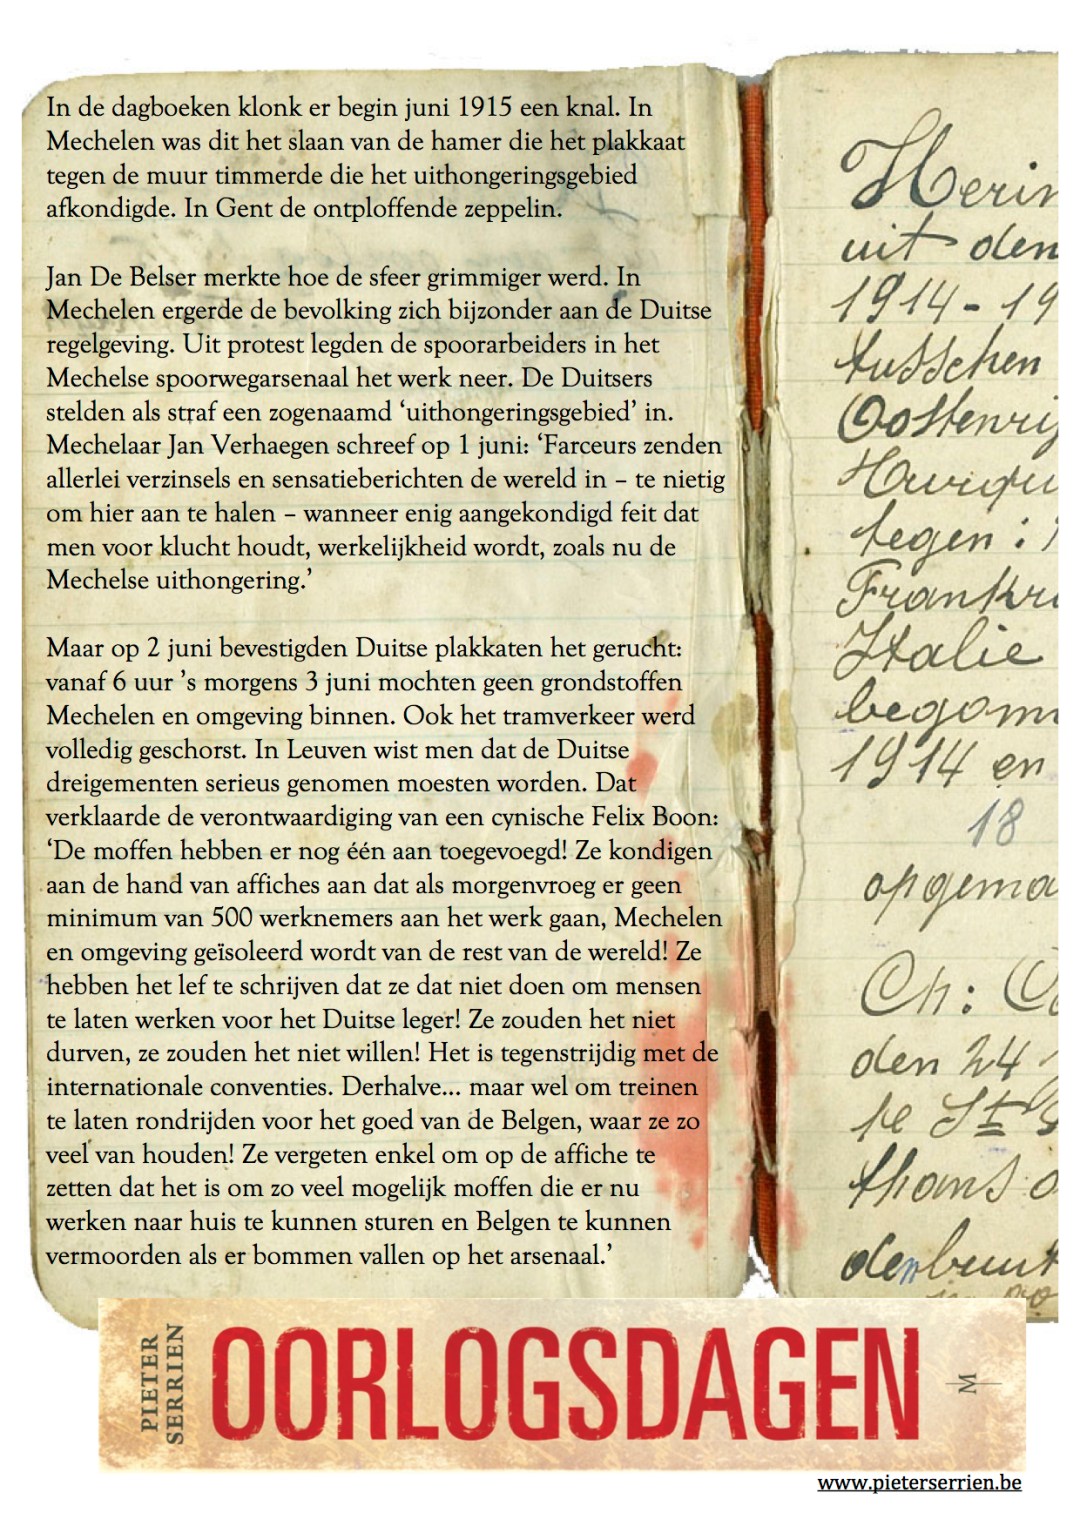 In de dagboeken klonk er begin juni 1915 een knal. In
Mechelen was dit het slaan van de hamer die het plakkaat
tegen de muur timmerde die het uithongeringsgebied
afkondigde. In Gent de ontploffende zeppelin.

Jan De Belser merkte hoe de sfeer grimmiger werd. In
Mechelen ergerde de bevolking zich bijzonder aan de Duitse
regelgeving. Uit protest legden de spoorarbeiders in het
Mechelse spoorwegarsenaal het werk neer. De Duitsers
stelden als straf een zogenaamd ‘uithongeringsgebied’ in.
Mechelaar Jan Verhaegen schreef op 1 juni: ‘Farceurs zenden
allerlei verzinsels en sensatieberichten de wereld in – te nietig
om hier aan te halen – wanneer enig aangekondigd feit dat
men voor klucht houdt, werkelijkheid wordt, zoals nu de
Mechelse uithongering.’

Maar op 2 juni bevestigden Duitse plakkaten het gerucht:
vanaf 6 uur ’s morgens 3 juni mochten geen grondstoffen
Mechelen en omgeving binnen. Ook het tramverkeer werd
volledig geschorst. In Leuven wist men dat de Duitse
dreigementen serieus genomen moesten worden. Dat
verklaarde de verontwaardiging van een cynische Felix Boon:
‘De moffen hebben er nog één aan toegevoegd! Ze kondigen
aan de hand van affiches aan dat als morgenvroeg er geen
minimum van 500 werknemers aan het werk gaan, Mechelen
en omgeving geïsoleerd wordt van de rest van de wereld! Ze
hebben het lef te schrijven dat ze dat niet doen om mensen
te laten werken voor het Duitse leger! Ze zouden het niet
durven, ze zouden het niet willen! Het is tegenstrijdig met de
internationale conventies. Derhalve... maar wel om treinen
te laten rondrijden voor het goed van de Belgen, waar ze zo
veel van houden! Ze vergeten enkel om op de affiche te
zetten dat het is om zo veel mogelijk moffen die er nu
werken naar huis te kunnen sturen en Belgen te kunnen
vermoorden als er bommen vallen op het arsenaal.’

Herin
uit den
1914-19
tusschen
Oostenrij
tegen :
Frankr
Italie
begonn
1914 en
18
opgema
Ch:
den 24
te St
thans

PIETER
SERRIEN
OORLOGSDAGEN
M
www.pieterserrien.be